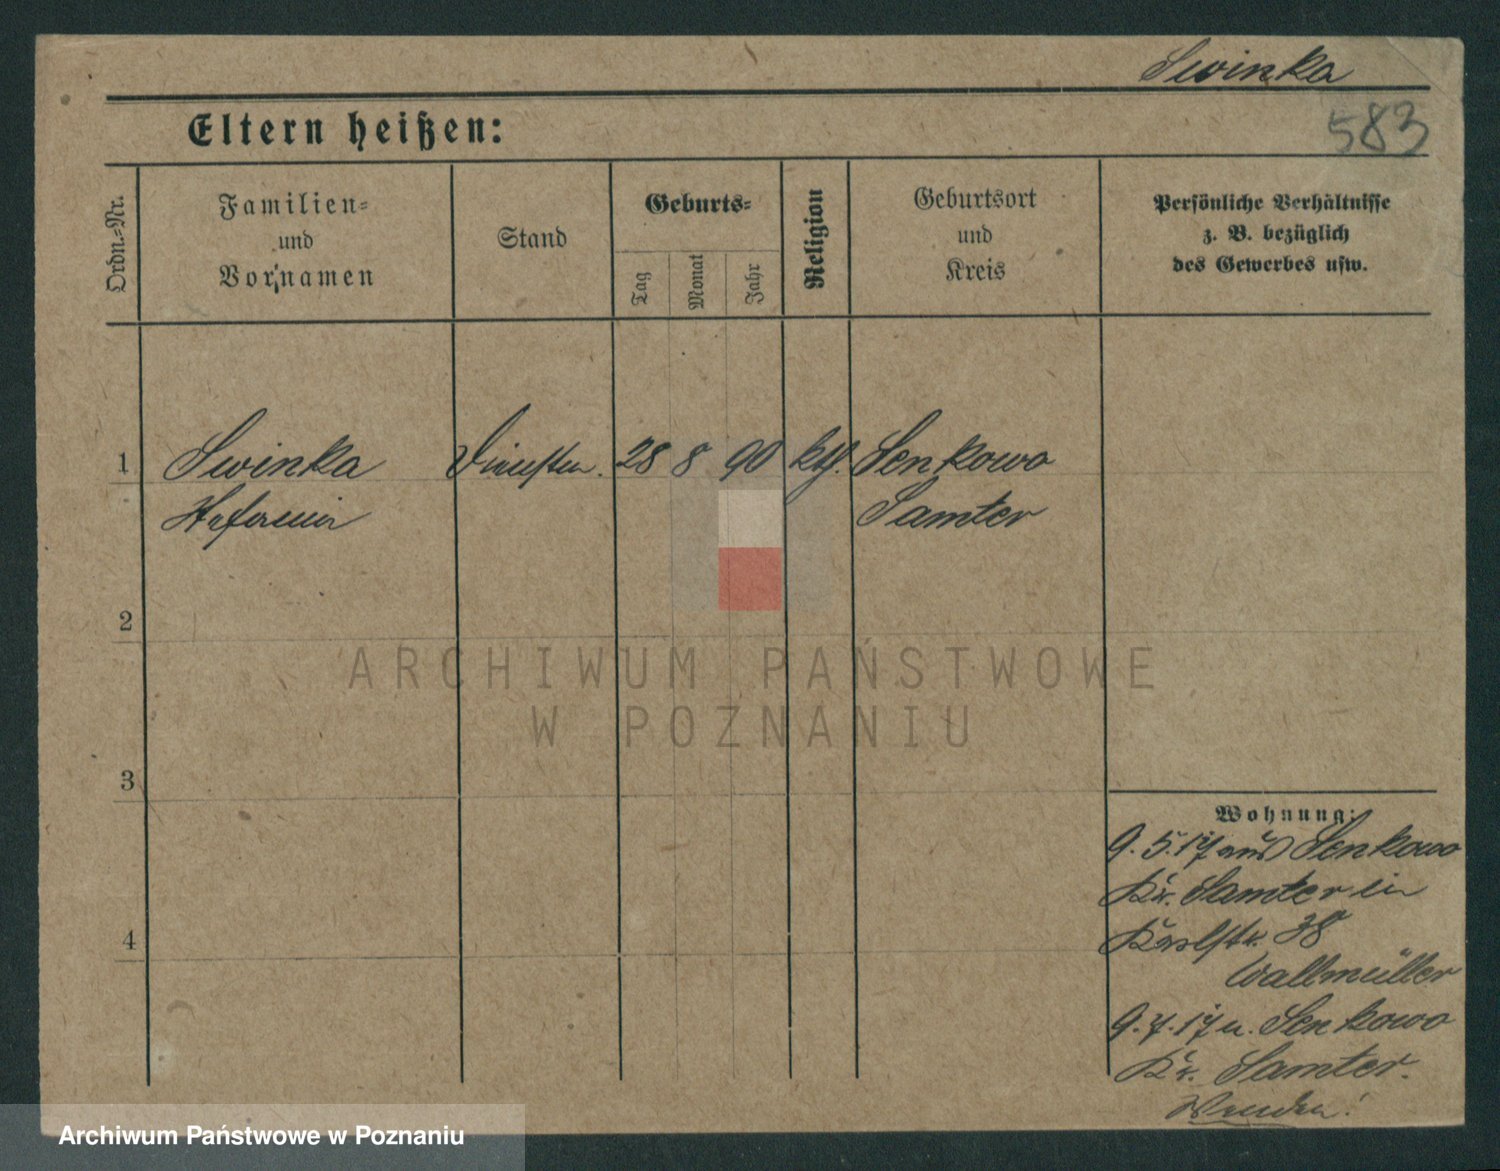 Swinka
583
Eltern heißen:
Ordn.-Nr.
Familien-
und
Vornamen
Stand
Geburts-
Tag
Monat
Jahr
Religion
Geburtsort
und
Kreis
Persönliche Verhältnisse
z. B. bezüglich
des Gewerbes usw.
1 Swinka 28 8 90 kth. Senkowo
Samter
2
3
4
Wohnung:
9.5.17 aus Senkowo
Kr. Samter in
Karlstr. 38
Wallmüller
9.7.17 n. Senkowo
Kr. Samter.
Wenden!
ARCHIWUM PAŃSTWOWE
W POZNANIU
Archiwum Państwowe w Poznaniu